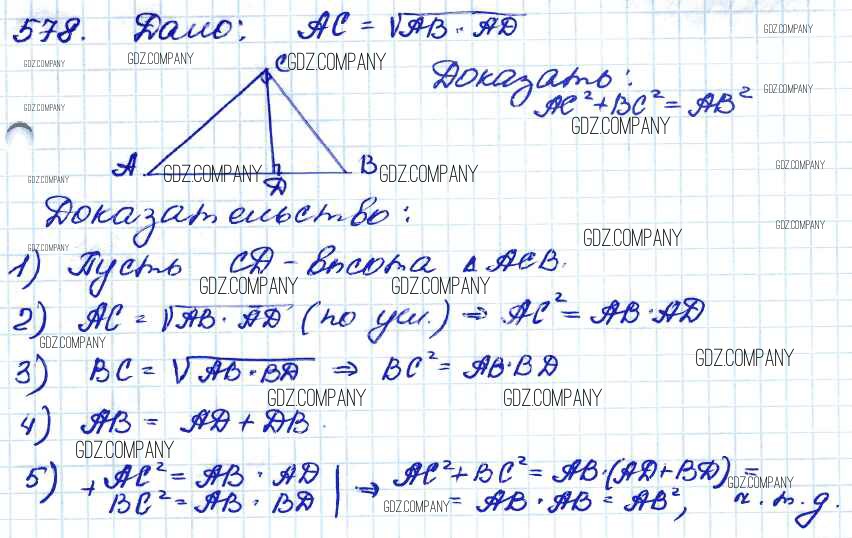 578. Дано: AC = √AB · AD
GDZ.COMPANY GDZ.COMPANY GDZ.COMPANY GDZ.COMPANY
C
Доказать:
AC² + BC² = AB²
GDZ.COMPANY GDZ.COMPANY GDZ.COMPANY
A D B
GDZ.COMPANY GDZ.COMPANY GDZ.COMPANY GDZ.COMPANY
Доказательство:
GDZ.COMPANY GDZ.COMPANY GDZ.COMPANY
1) Пусть CD - высота △ ACB.
GDZ.COMPANY GDZ.COMPANY
2) AC = √AB · AD (по усл.) ⇒ AC² = AB · AD
GDZ.COMPANY GDZ.COMPANY
3) BC = √AB · BD ⇒ BC² = AB · BD
GDZ.COMPANY GDZ.COMPANY
4) AB = AD + DB.
GDZ.COMPANY
5) + AC² = AB · AD | ⇒ AC² + BC² = AB · (AD + BD) =
GDZ.COMPANY
BC² = AB · BD | = AB · AB = AB², ч.т.д.
GDZ.COMPANY